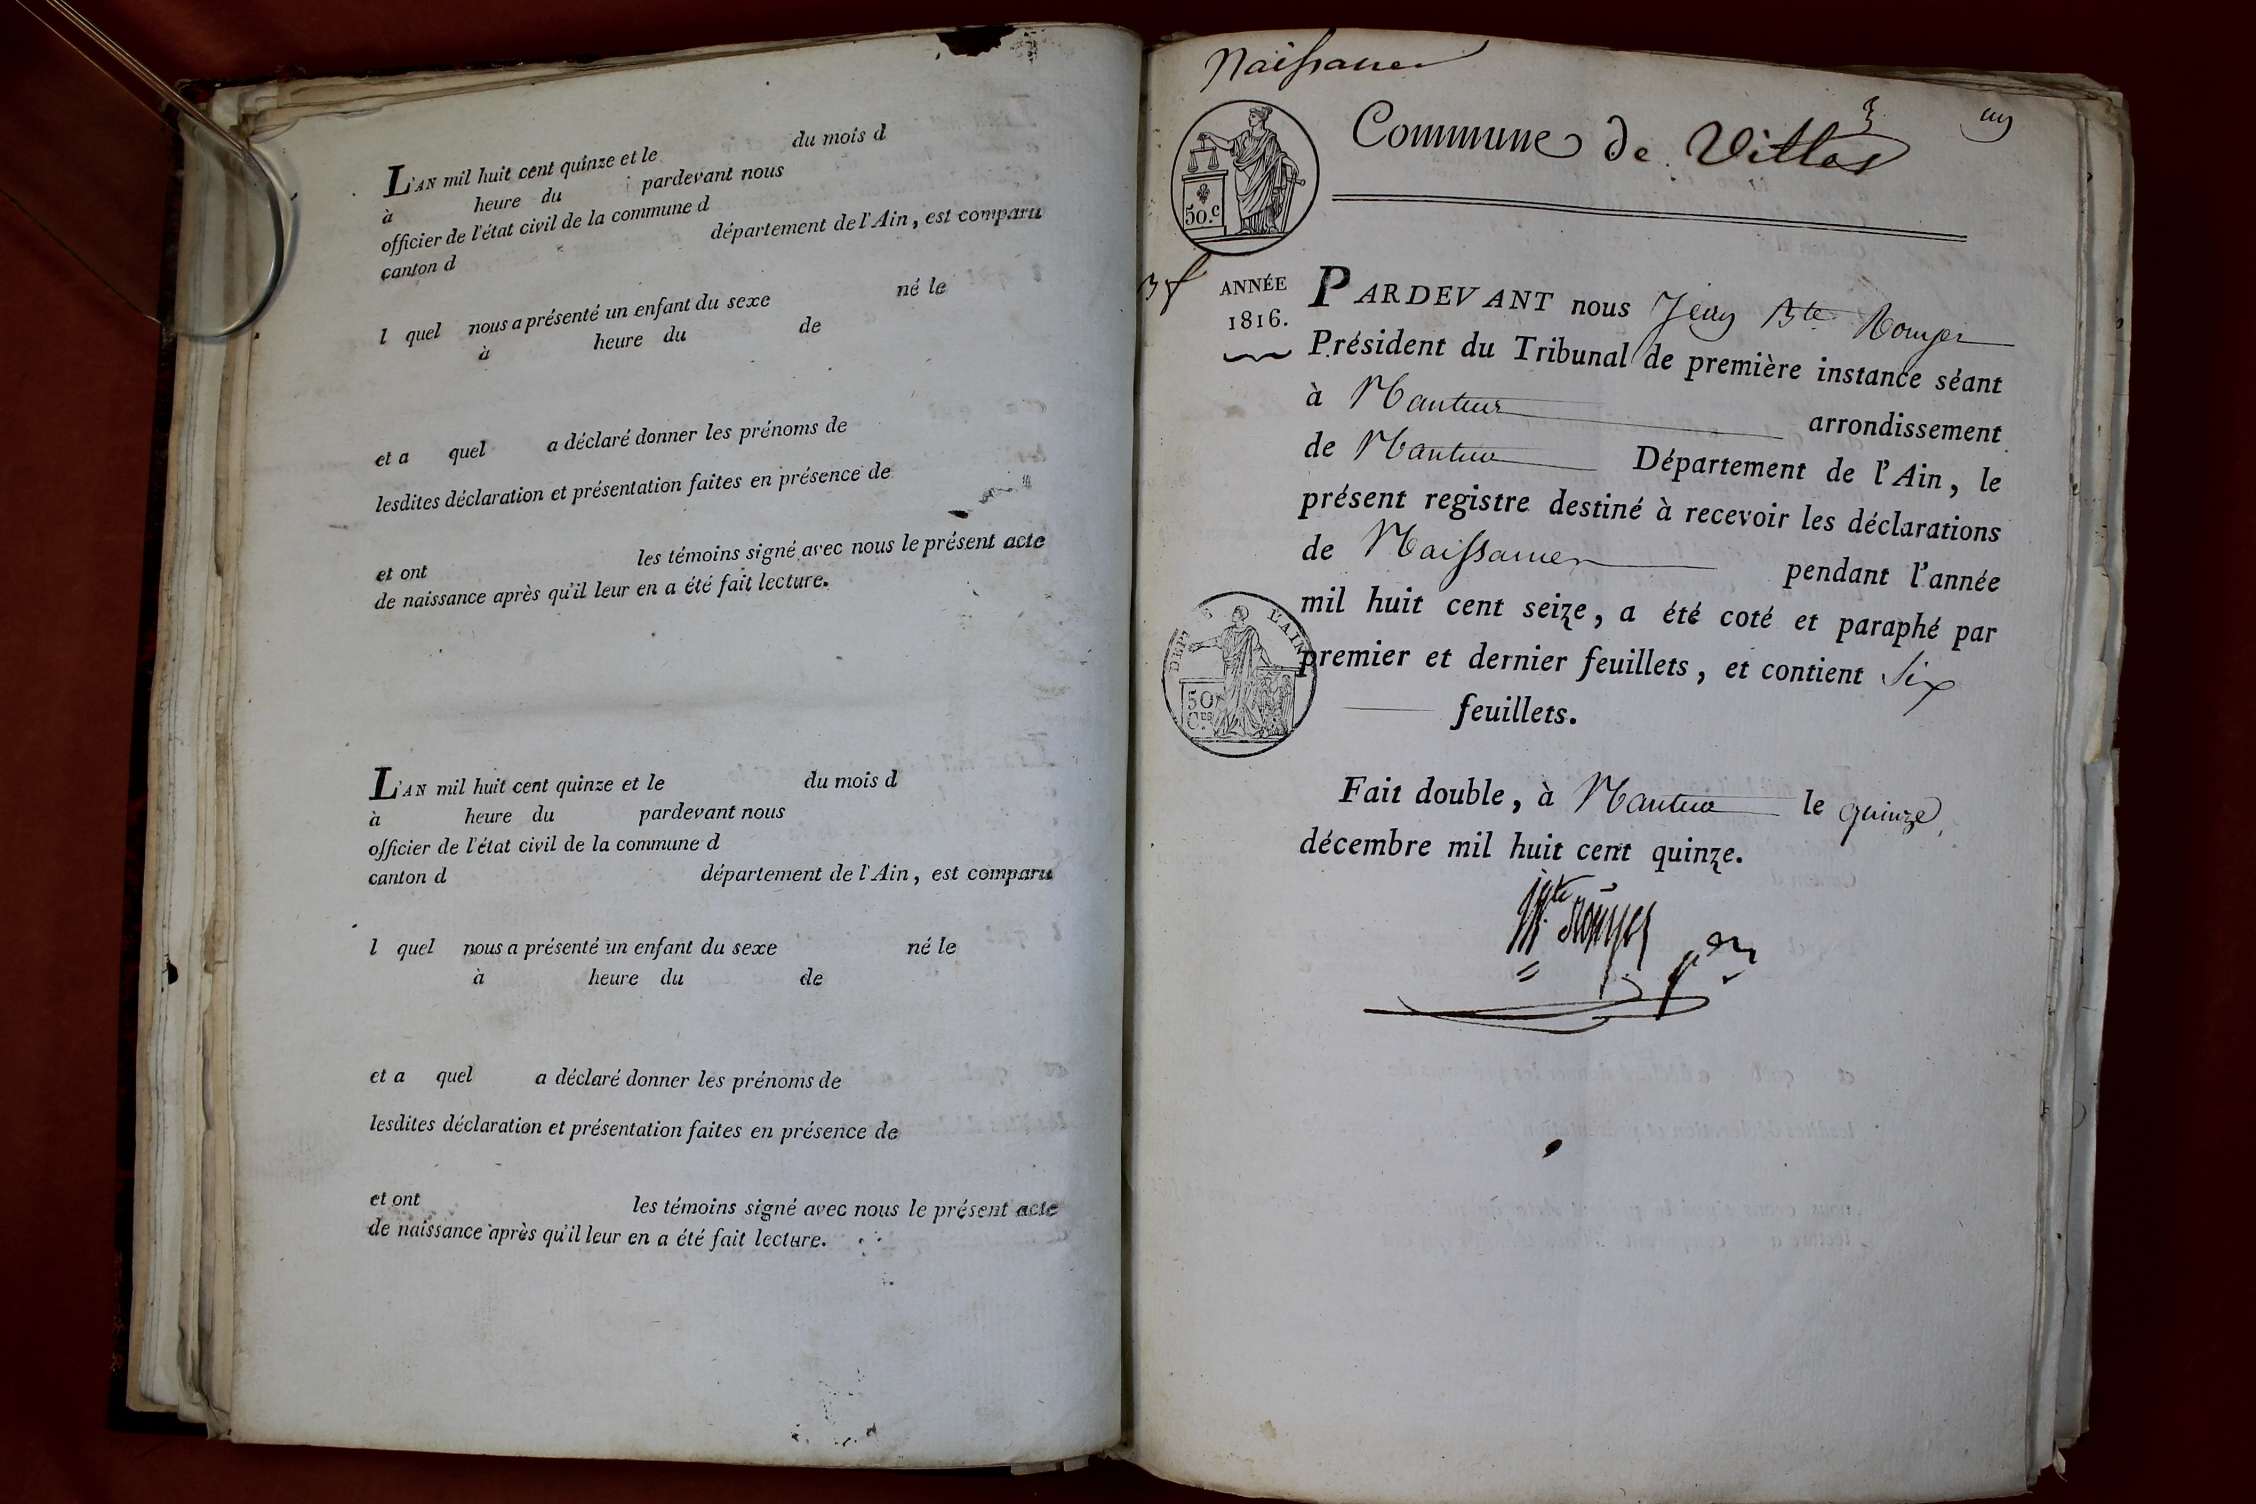 L'AN mil huit cent quinze et le du mois d
à heure du pardevant nous
officier de l'état civil de la commune d
canton d département de l'Ain, est comparu
l quel nous a présenté un enfant du sexe né le
à heure du de
et a quel a déclaré donner les prénoms de
lesdites déclaration et présentation faites en présence de
et ont les témoins signé avec nous le présent acte
de naissance après qu'il leur en a été fait lecture.
L'AN mil huit cent quinze et le du mois d
à heure du pardevant nous
officier de l'état civil de la commune d
canton d département de l'Ain, est comparu
l quel nous a présenté un enfant du sexe né le
à heure du de
et a quel a déclaré donner les prénoms de
lesdites déclaration et présentation faites en présence de
et ont les témoins signé avec nous le présent acte
de naissance après qu'il leur en a été fait lecture.
Naissances
50.c
Commune de
ANNÉE
1816.
PARDEVANT nous Jean Bte Rouyer
Président du Tribunal de première instance séant
à Nantua arrondissement
de Nantua Département de l'Ain, le
présent registre destiné à recevoir les déclarations
de Naissances pendant l'année
mil huit cent seize, a été coté et paraphé par
premier et dernier feuillets, et contient six
feuillets.
DEP DE L'AIN
50
CES
Fait double, à Nantua le quinze
décembre mil huit cent quinze.